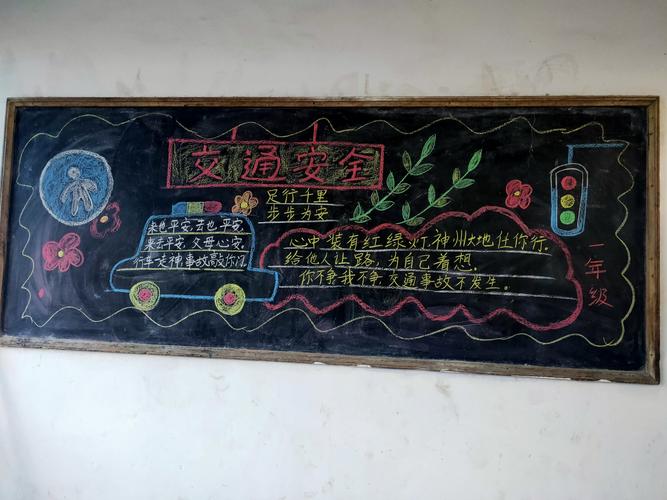 交通安全
足行千里
步步为安
来也平安,去也平安,
来去平安,父母心安,
行车走神事故敲你门
心中装有红绿灯,神州大地任你行,
给他人让路,为自己着想,
你不争我不争,交通事故不发生。
一年级